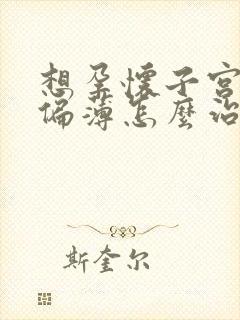 想孕懷子宮
偏薄怎麼治
斯奎尔